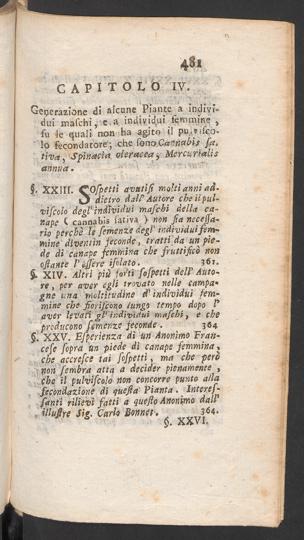 481
CAPITOLO IV.
Generazione di alcune Piante a indivi-
dui maschi, e a individui femmine,
su le quali non ha agito il pulvisco-
lo fecondatore; che sono Cannabis sa-
tiva, Spinacia oleracea, Mercurialis
annua.
§. XXIII. Sospetti avutisi molti anni ad-
dietro dall' Autore che il pul-
viscolo degl' individui maschi della ca-
nape (cannabis sativa) non sia necessa-
rio perchè le semenze degl' individui fem-
mine divenin feconde, tratti da un pie-
de di canape femmina che fruttificò non
ostante l'essere isolato. 361.
§. XIV. Altri più forti sospetti dell' Auto-
re, per aver egli trovato nelle campa-
gne una moltitudine d'individui fem-
mine che fioriscono lungo tempo dopo l'
aver levati gl' individui maschi, e che
producono semenze feconde. 364
§. XXV. Esperienza di un Anonimo Fran-
cese sopra un piede di canape femmina,
che accresce tai sospetti, ma che però
non sembra atta a decider pienamente,
che il pulviscolo non concorre punto alla
fecondazione di questa Pianta. Interes-
santi rilievi fatti a questo Anonimo dall'
illustre Sig. Carlo Bonnet. 364.
§. XXVI.